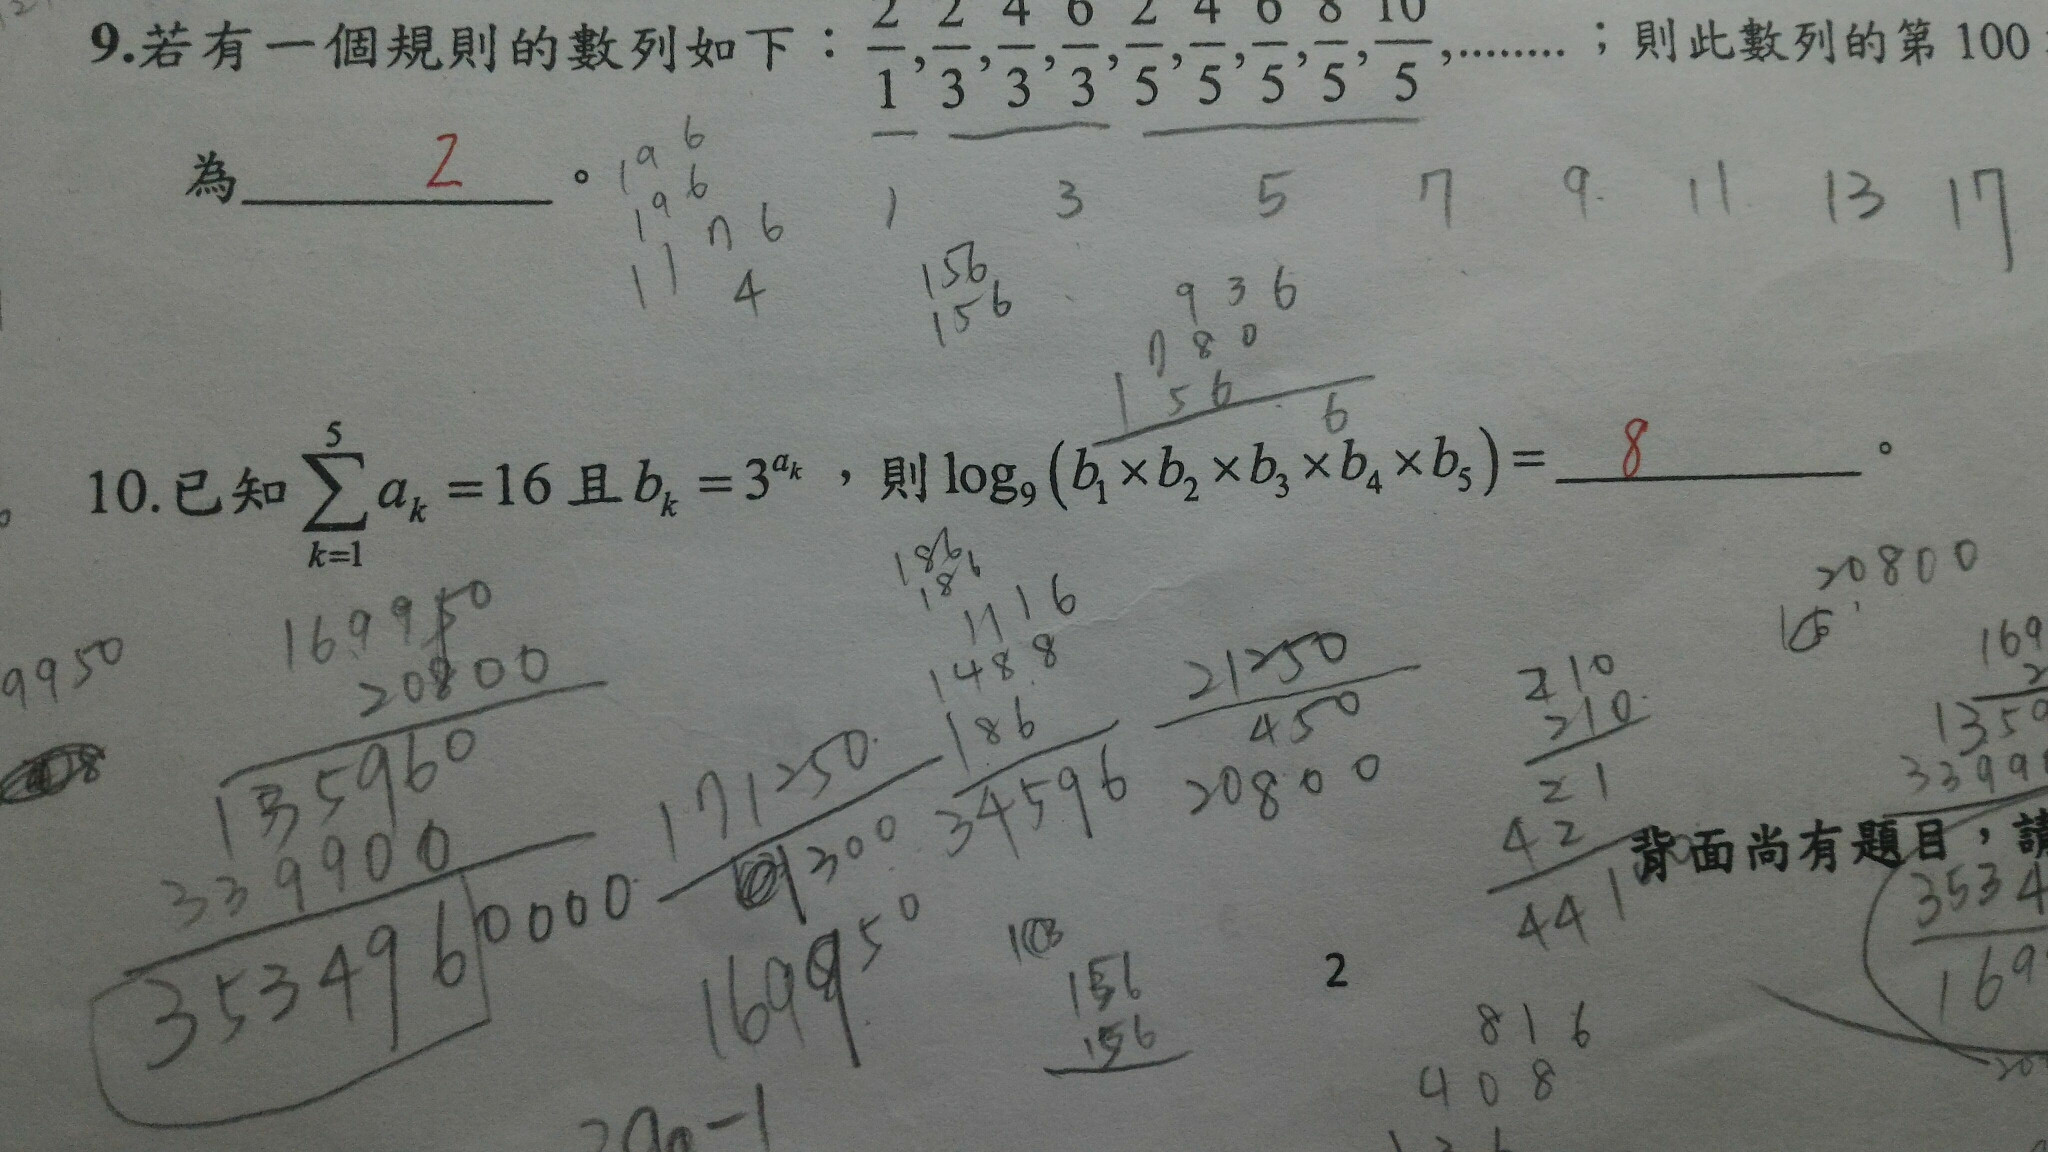 9.若有一個規則的數列如下：2/1, 2/3, 4/3, 6/3, 2/5, 4/5, 6/5, 8/5, 10/5, ........；則此數列的第 100
為 2 。
196
196
1 3 5 7 9 11 13 17
1176
4
156
156
936
780
156
6
10.已知 \sum_{k=1}^{5} a_k = 16 且 b_k = 3^{a_k}，則 log_9 (b_1 × b_2 × b_3 × b_4 × b_5) = 8 。
186
186
1116
1488
186
34596
20800
9950
169950
20800
135960
339900
3534960000
171250
1300
169950
21250
450
20800
210
210
21
42
441
169
1350
3399
背面尚有題目，請
3534
169
156
156
2
816
408